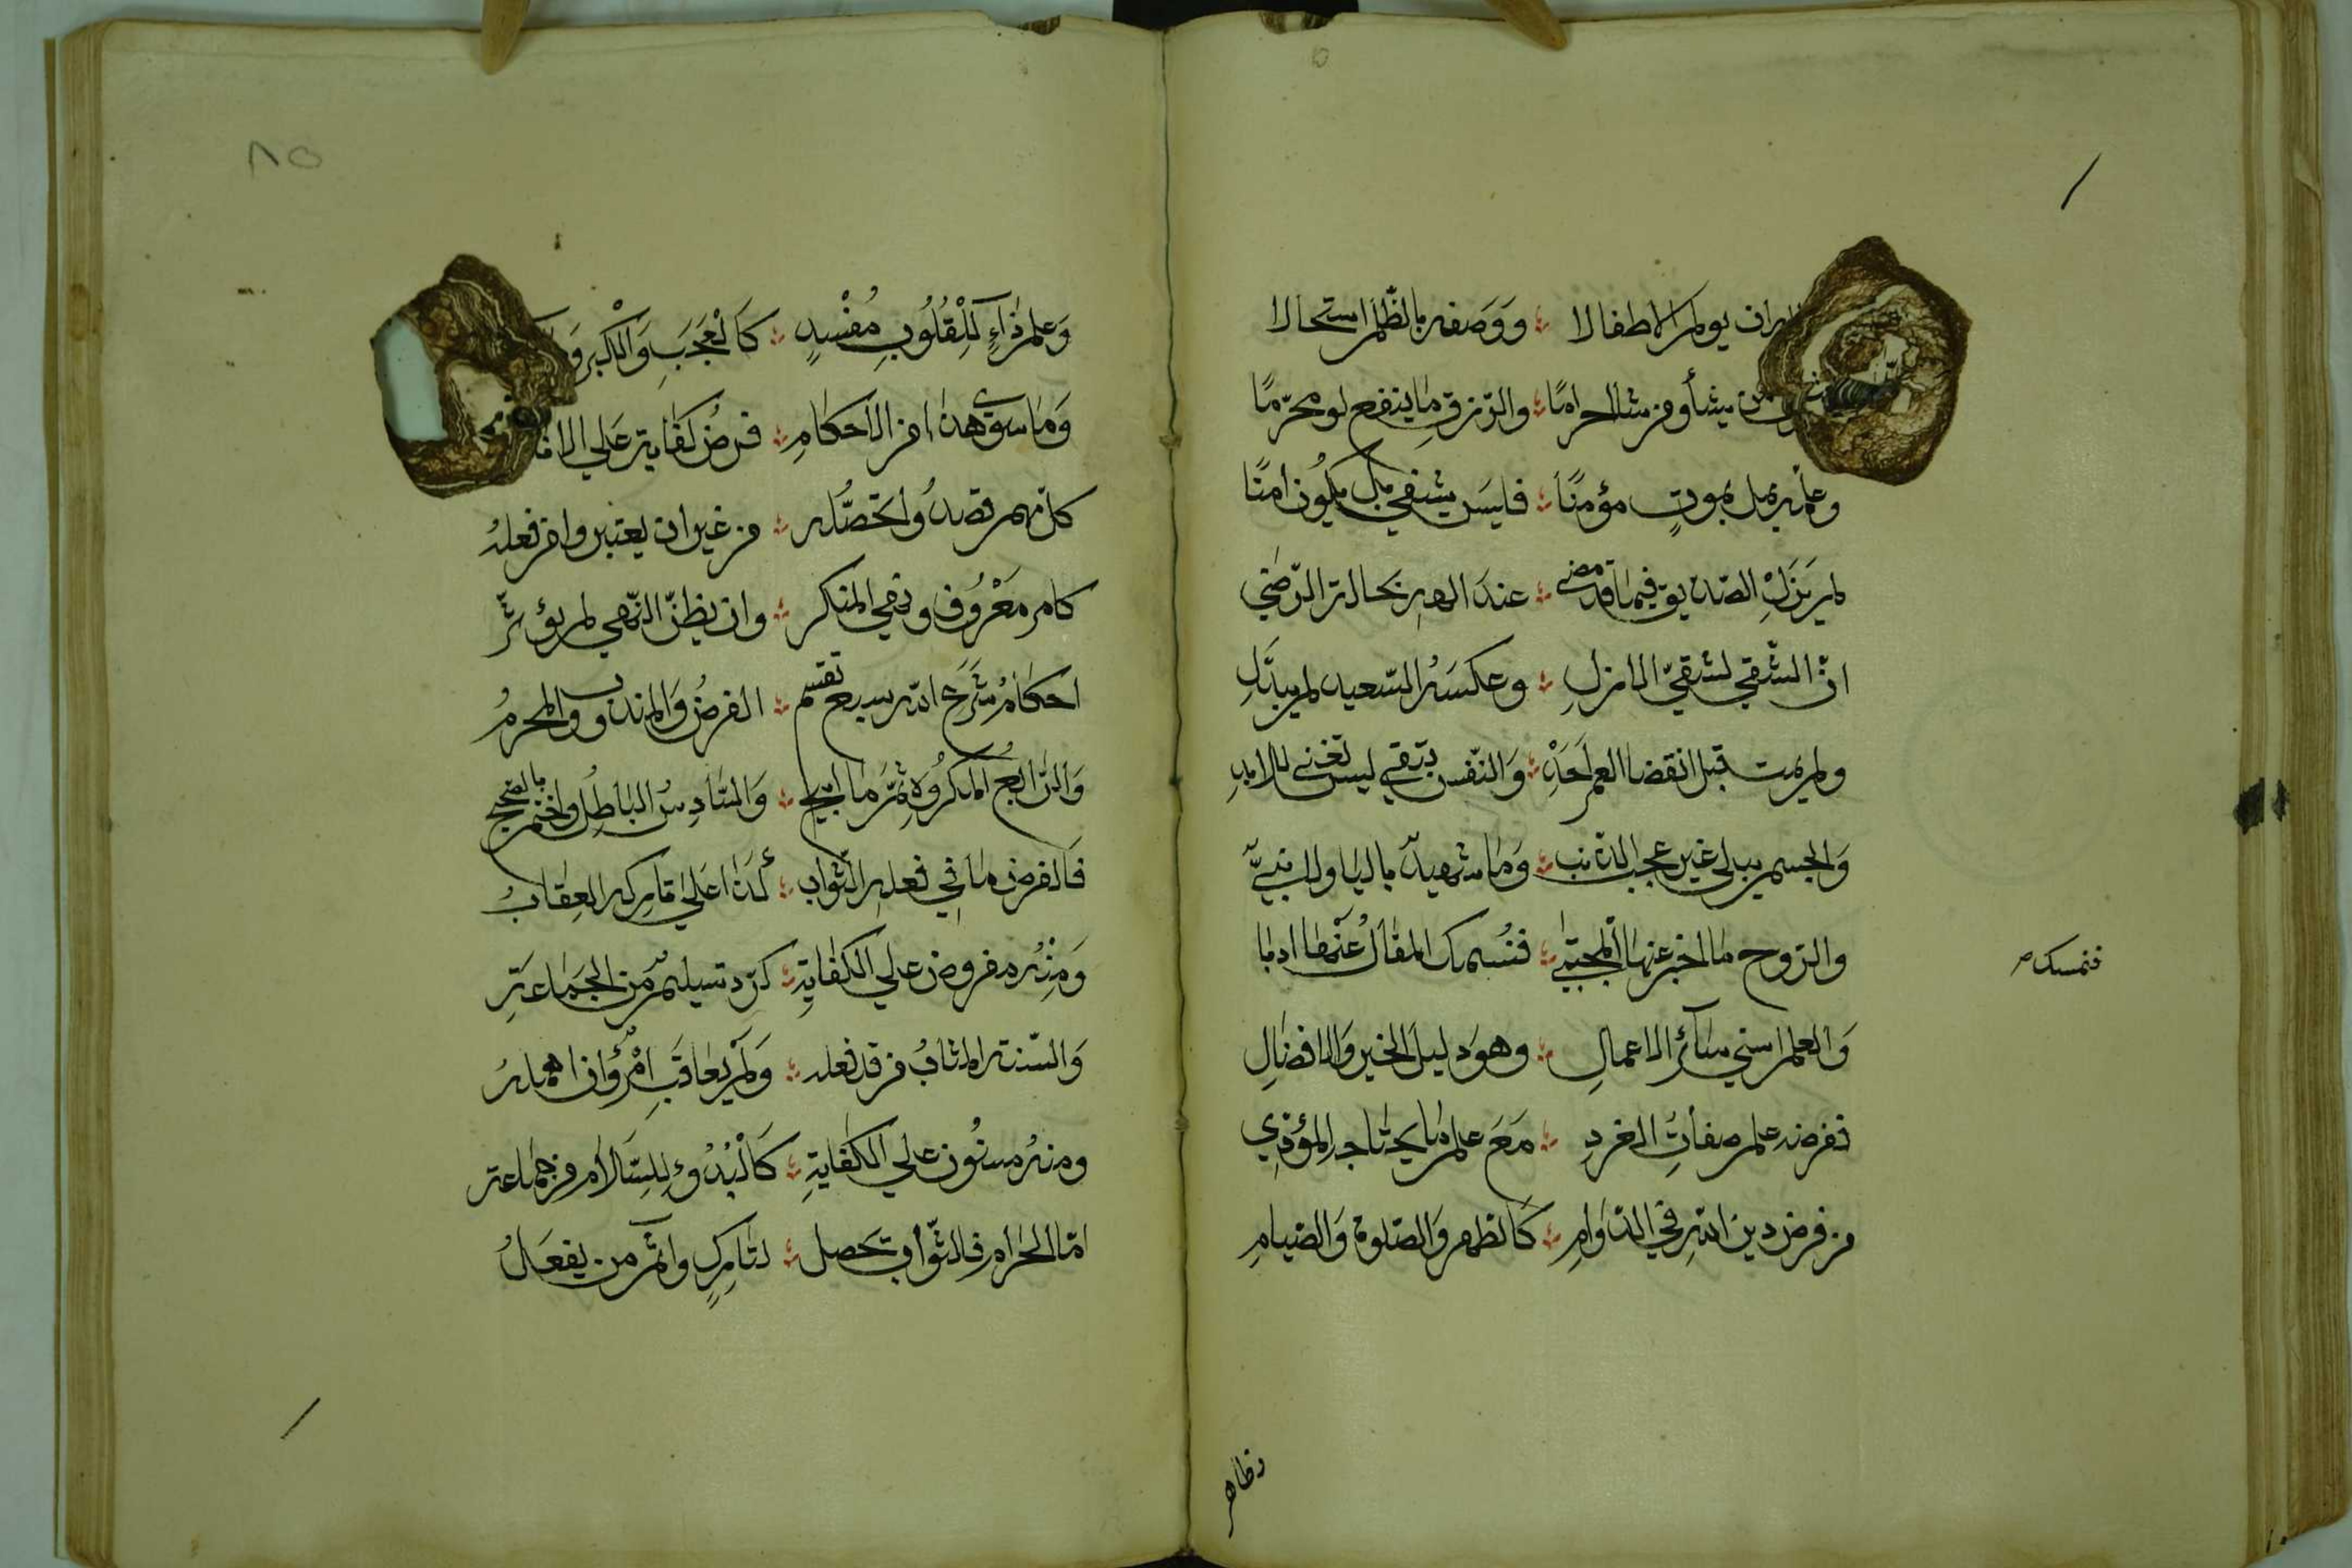 ان يولم الاطفالا ؞ ووصفه بالظلم استحالا
من يشأ ومن شا احرما ؞ والرزق ما ينفع لو محرّما
وعلمه بمن يموت مؤمنًا ؞ فليس يشقي بل يكون امنًا
لم يزل الصديق فيما قد مضى ؞ عند الهه بحالة الرّضي
انّ الشّقي لشقيّ الازلِ ؞ وعكسه السّعيد لم يبدّلِ
ولم يمت قبل انقضا العمر احد ؞ والنّفس تبقي ليس تفني للابد
والجسم يبلي غير عجب الذنب ؞ وما شهيدٌ باليا ولا نبيّ
والرّوح ما اخبر عنها المجتبي ؞ فنُمسك المقال عنها ادبا
فنمسك صح
والعلم اسني سآئر الاعمالِ ؞ وهو دليل الخير والافضالِ
ففرضه علم صفات الفرد ؞ مع علم ما يحتاجه المؤدّي
من فرض دين الله في الدّوامِ ؞ كالطهر والصلوة والصيامِ
وظاهر
٨٥
وعلم داءٍ للقلوب مُفسدٍ ؞ كالعجب والكبر و
وما سوى هذا من الاحكام ؞ فرضُ كفاية علي الا
كلّ مهم قصدُوا تحصّله ؞ من غير ان يعتبروا من فعله
كامر معروف ونهي المنكر ؞ وان يظنّ النّهي لم يؤثّر
احكام شرع الله سبع تقسم ؞ الفرضُ والمندوب والمحرمُ
والرّابع المكروه ثمّ ما ابيح ؞ والسّادس الباطل واختم بالصحيح
فالفرض ما في فعله الثّواب ؞ كذا علي تاركه العقابُ
ومنه مفروض علي الكفاية ؞ كردّ تسليمٍ من الجماعة
والسّنة المثابُ من قد فعله ؞ ولم يعاقب امرؤٌ ان اهمله
ومنه مسنون علي الكفاية ؞ كالبدُوءِ للسّلام من جماعة
امّا الحرام فالثّواب تحصل ؞ لتاركٍ واثم من يفعلُ